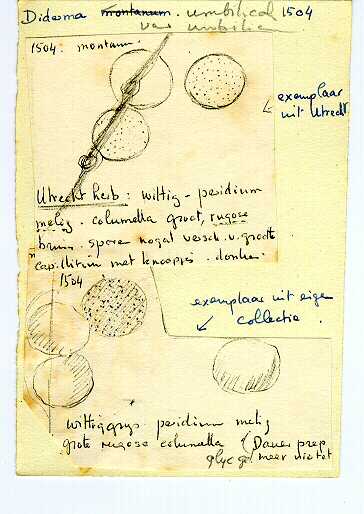 Diderma montanum. umbilicat 1504
var umbilic
1504. montan.
exemplaar
uit Utrecht
Utrecht herb: wittig - peridium
melig. columella groot, rugose
bruin. sporen nogal versch. v. grootte
capillitium met knoopjes. donker.
1504
exemplaar uit eigen
collectie.
wittiggrijs peridium melig
grote rugose columella (Dauer prep
glyc gel meer niet tot